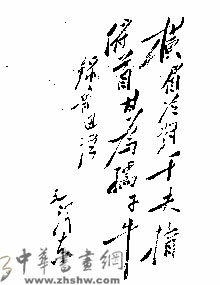 横眉冷对千夫指
俯首甘为孺子牛
录鲁迅语
毛泽东
中华书画网
www.zhshw.com